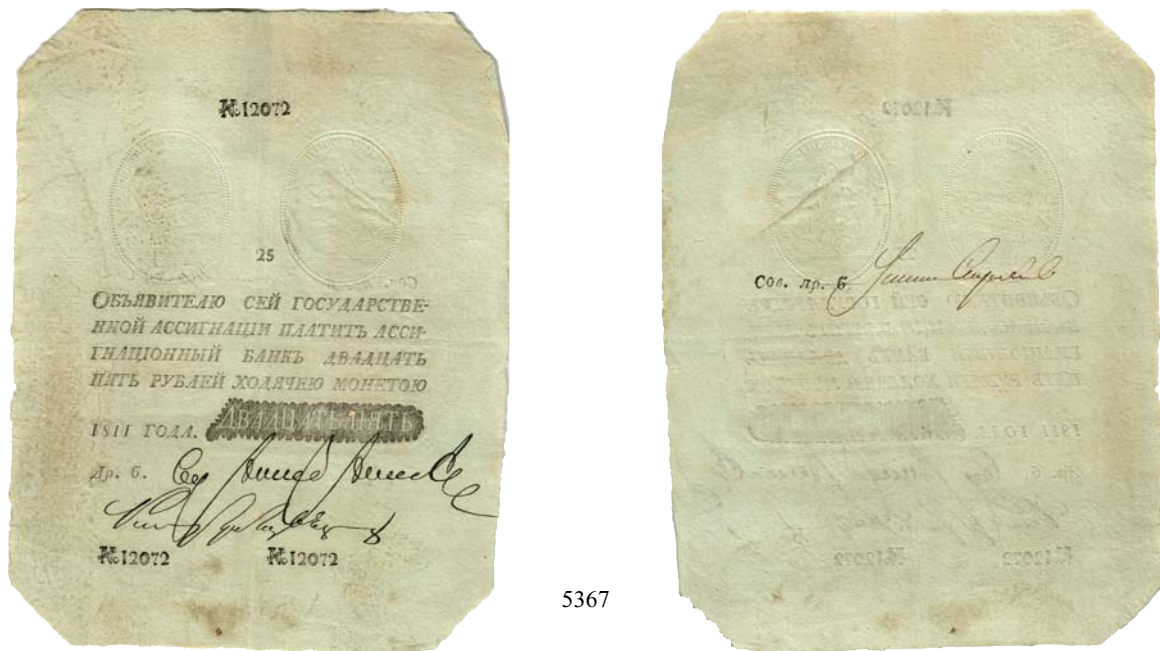 №12072
25
ОБЪЯВИТЕЛЮ СЕЙ ГОСУДАРСТВЕ-
ННОЙ АССИГНАЦІИ ПЛАТИТЪ АССИ-
ГНАЦІОННЫЙ БАНКЪ ДВАДЦАТЬ
ПЯТЬ РУБЛЕЙ ХОДЯЧЕЮ МОНЕТОЮ
1811 ГОДА. ДВАДЦАТЬ ПЯТЬ
Др. б.
№12072 №12072
Сов. лр. б.
5367